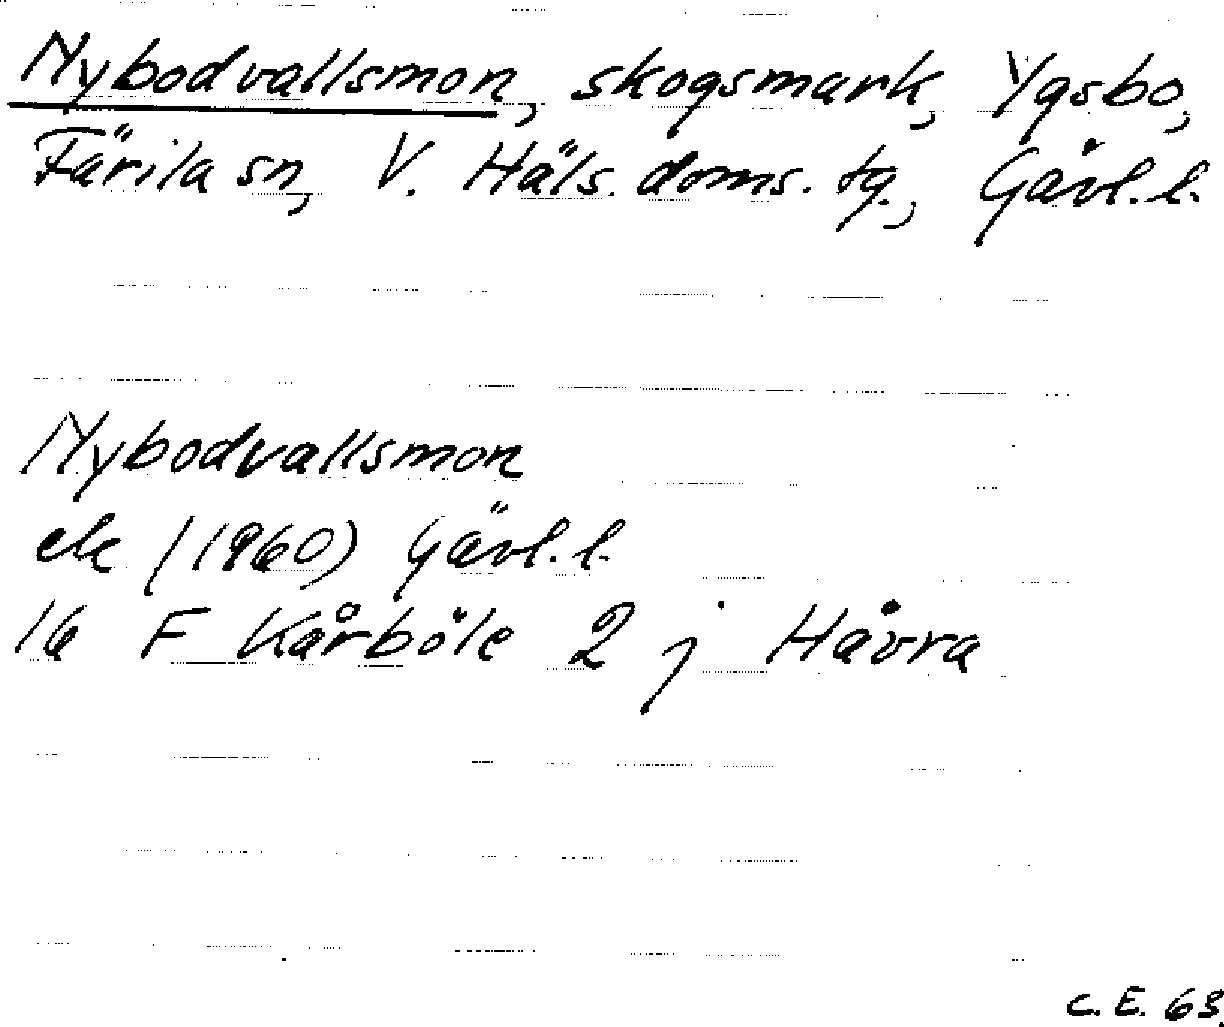 Nybodvallsmon, skogsmark, Ygsbo,
Färila sn, V. Häls. doms. tg., Gävl. l.
Nybodvallsmon
ek (1960) Gävl. l.
16 F Kårböle 2 j Håvra
C. E. 63.